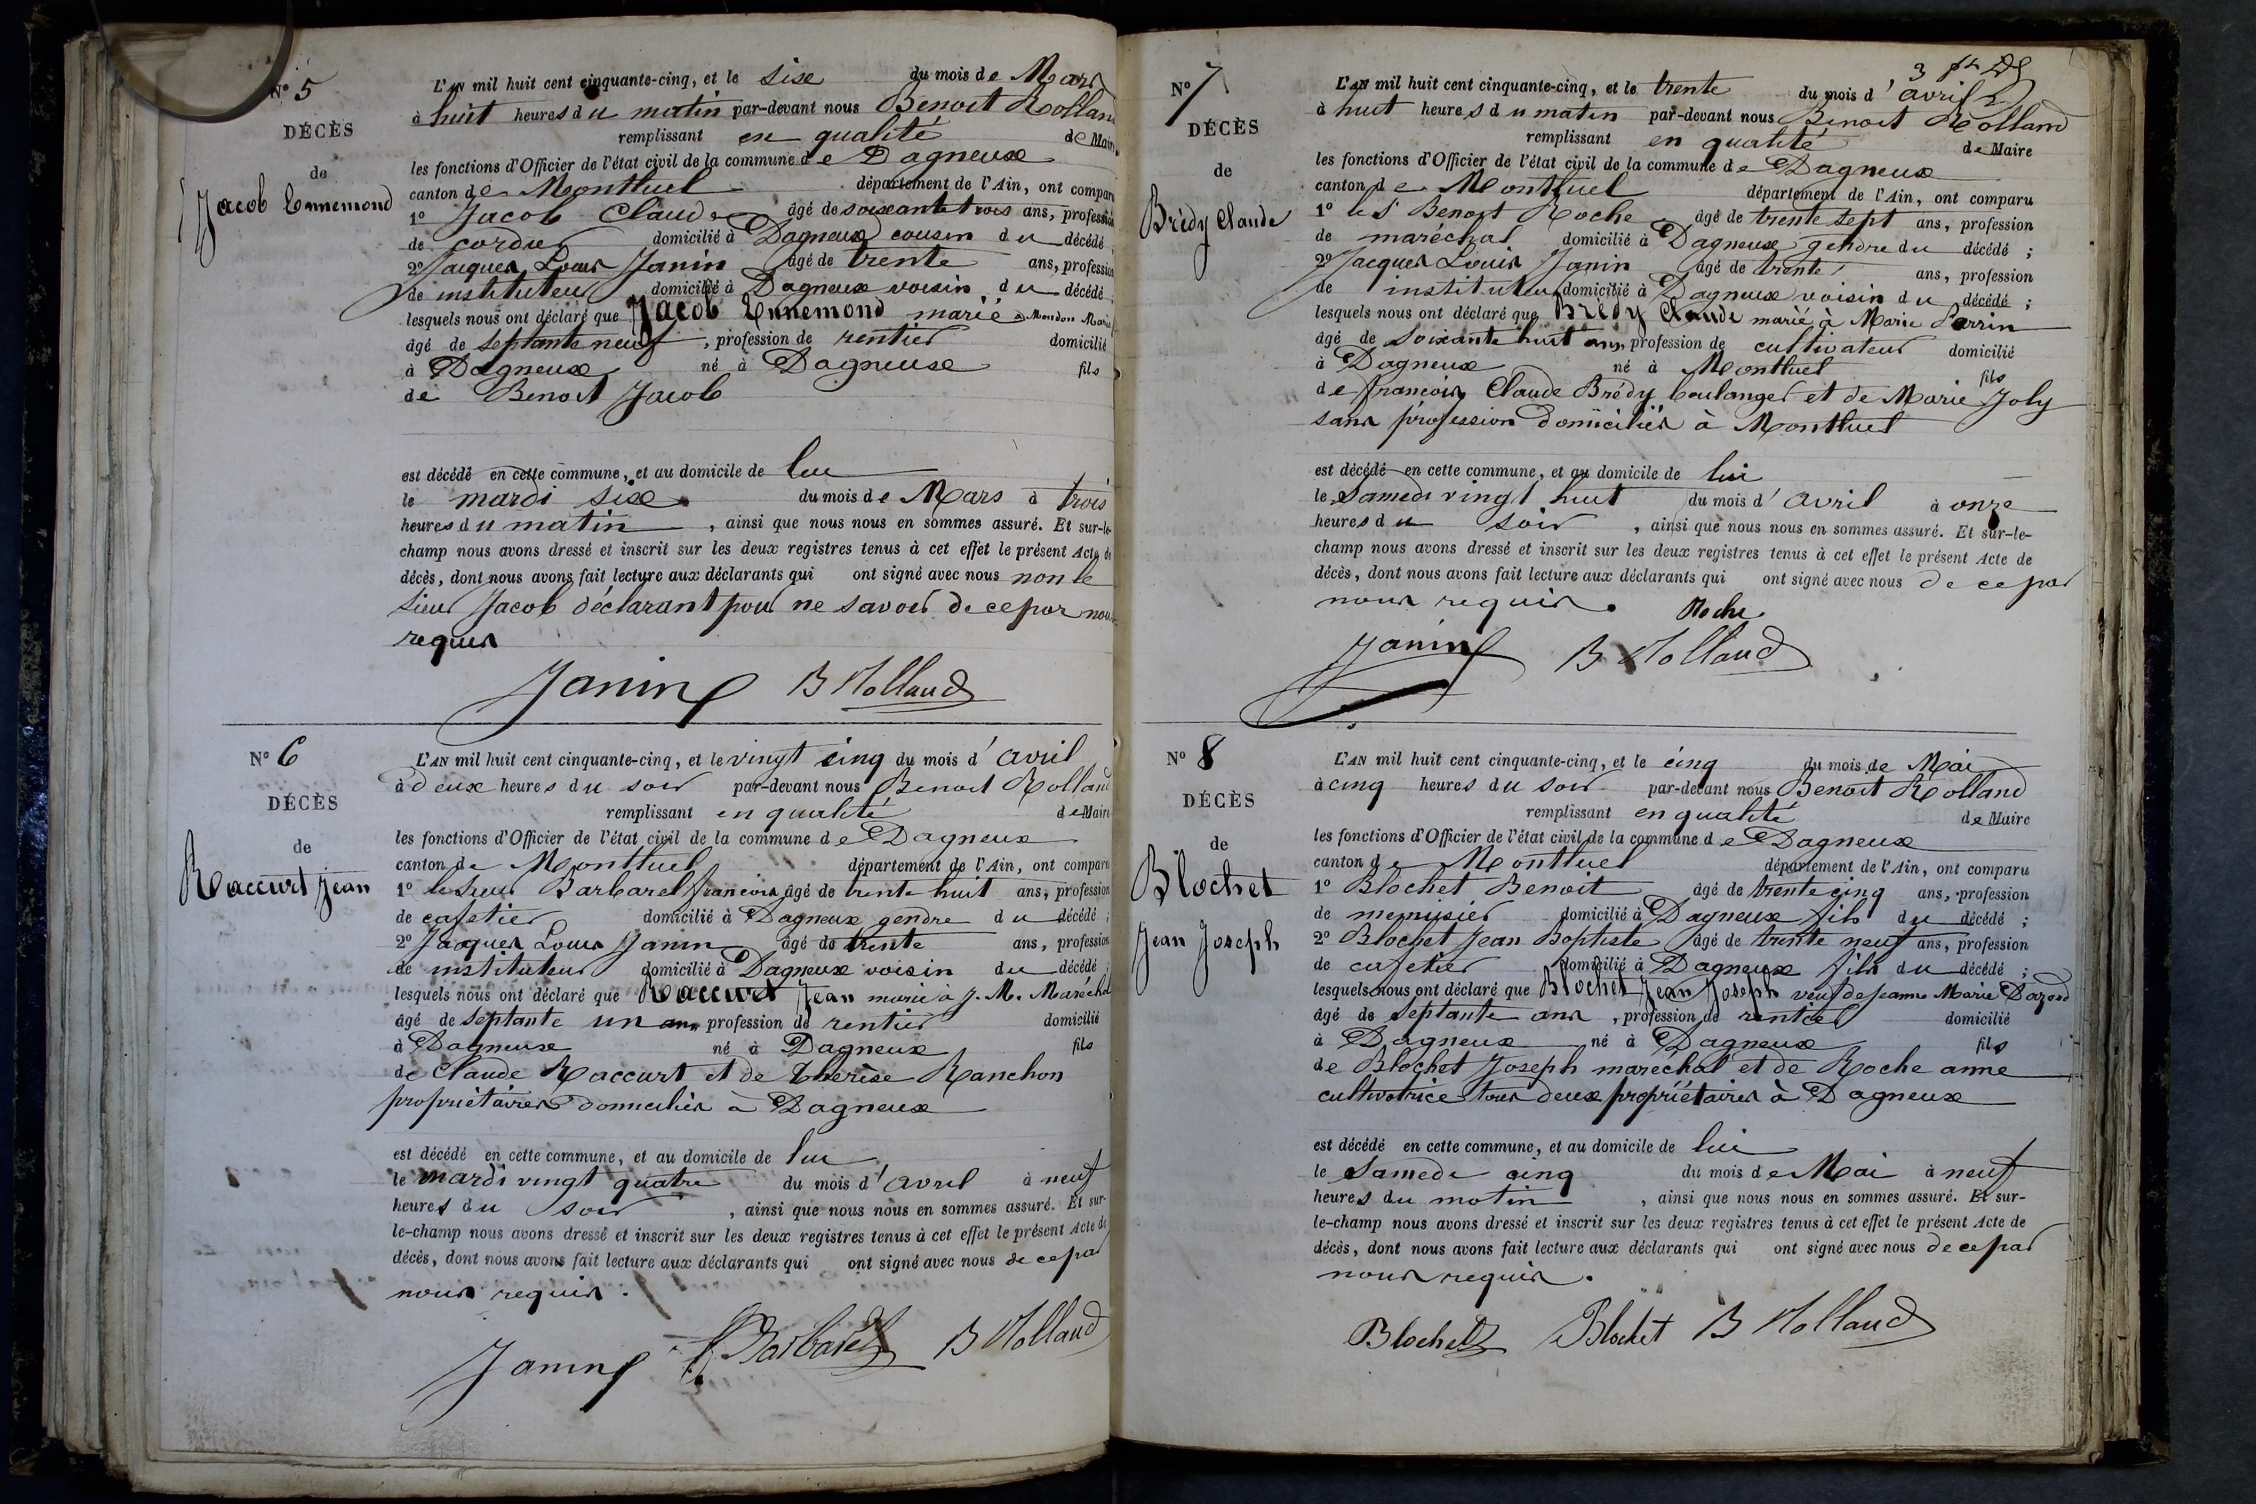 N° 5
DÉCÈS
de
Jacob Ennemond
L'AN mil huit cent cinquante-cinq, et le six du mois de Mars
à huit heures du matin par-devant nous Benoit Rolland
remplissant en qualité de Maire
les fonctions d'Officier de l'état civil de la commune de Dagneux
canton de Montluel département de l'Ain, ont comparu
1° Jacob Claude âgé de soixante trois ans, profession
de cordier domicilié à Dagneux cousin du décédé ;
2° Jacques Louis Janin âgé de trente ans, profession
de instituteur domicilié à Dagneux voisin du décédé ;
lesquels nous ont déclaré que Jacob Ennemond marié à Moudon Marie
âgé de septante neuf , profession de rentier domicilié
à Dagneux né à Dagneux fils
de Benoit Jacob
est décédé en cette commune, et au domicile de lui
le mardi six du mois de Mars à trois
heures du matin , ainsi que nous nous en sommes assuré. Et sur-le-
champ nous avons dressé et inscrit sur les deux registres tenus à cet effet le présent Acte de
décès, dont nous avons fait lecture aux déclarants qui ont signé avec nous non le
sieur Jacob déclarant pour ne savoir de ce par nous
requis
Janin B Rolland
N° 6
DÉCÈS
de
Raccurt Jean
L'AN mil huit cent cinquante-cinq, et le vingt cinq du mois d'avril
à deux heures du soir par-devant nous Benoit Rolland
remplissant en qualité de Maire
les fonctions d'Officier de l'état civil de la commune de Dagneux
canton de Montluel département de l'Ain, ont comparu
1° le sieur Barbarel françois âgé de trente huit ans, profession
de cafetier domicilié à Dagneux gendre du décédé ;
2° Jacques Louis Janin âgé de trente ans, profession
de instituteur domicilié à Dagneux voisin du décédé ;
lesquels nous ont déclaré que Raccurt Jean marié à J. M. Maréchal
âgé de septante un ans profession de rentier domicilié
à Dagneux né à Dagneux fils
de Claude Raccurt et de Thérèse Ranchon
propriétaires domiciliés à Dagneux
est décédé en cette commune, et au domicile de lui
le mardi vingt quatre du mois d'avril à neuf
heures du soir , ainsi que nous nous en sommes assuré. Et sur-
le-champ nous avons dressé et inscrit sur les deux registres tenus à cet effet le présent Acte de
décès, dont nous avons fait lecture aux déclarants qui ont signé avec nous de ce par
nous requis.
Janin Barbarel B Rolland
3
N° 7
DÉCÈS
de
Brédy Claude
L'AN mil huit cent cinquante-cinq, et le trente du mois d'avril
à huit heures du matin par-devant nous Benoit Rolland
remplissant en qualité de Maire
les fonctions d'Officier de l'état civil de la commune de Dagneux
canton de Montluel département de l'Ain, ont comparu
1° le S Benoit Roche âgé de trente sept ans, profession
de maréchal domicilié à Dagneux gendre du décédé ;
2° Jacques Louis Janin âgé de trente ans, profession
de instituteur domicilié à Dagneux voisin du décédé ;
lesquels nous ont déclaré que Brédy Claude marié à Marie Perrin
âgé de soixante huit ans, profession de cultivateur domicilié
à Dagneux né à Montluel fils
de françois Claude Brédy boulanger et de Marie Joly
sans profession domiciliés à Montluel
est décédé en cette commune, et au domicile de lui
le samedi vingt huit du mois d'avril à onze
heures du soir , ainsi que nous nous en sommes assuré. Et sur-le-
champ nous avons dressé et inscrit sur les deux registres tenus à cet effet le présent Acte de
décès, dont nous avons fait lecture aux déclarants qui ont signé avec nous de ce par
nous requis. Roche
Janin B Rolland
N° 8
DÉCÈS
de
Blochet
Jean Joseph
L'AN mil huit cent cinquante-cinq, et le cinq du mois de Mai
à cinq heures du soir par-devant nous Benoit Rolland
remplissant en qualité de Maire
les fonctions d'Officier de l'état civil de la commune de Dagneux
canton de Montluel département de l'Ain, ont comparu
1° Blochet Benoit âgé de trente cinq ans, profession
de menuisier domicilié à Dagneux fils du décédé ;
2° Blochet Jean Baptiste âgé de trente neuf ans, profession
de cafetier domicilié à Dagneux fils du décédé ;
lesquels nous ont déclaré que Blochet Jean Joseph veuf de Jeanne Marie
âgé de septante ans , profession de rentier domicilié
à Dagneux né à Dagneux fils
de Blochet Joseph maréchal et de Roche anne
cultivatrice tous deux propriétaires à Dagneux
est décédé en cette commune, et au domicile de lui
le samedi cinq du mois de Mai à neuf
heures du matin , ainsi que nous nous en sommes assuré. Et sur-
le-champ nous avons dressé et inscrit sur les deux registres tenus à cet effet le présent Acte de
décès, dont nous avons fait lecture aux déclarants qui ont signé avec nous de ce par
nous requis.
Blochet Blochet B Rolland